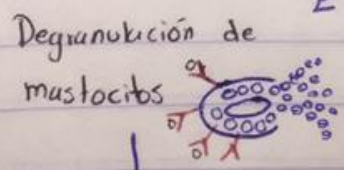 Degranulación de
mastocitos